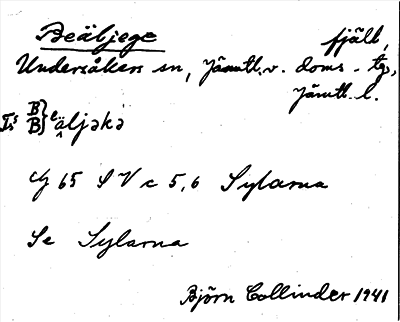 Beäljege fjäll,
Undersåkers sn, Jämtl. v. doms. tg,
Jämtl. l.
B
B äljəkə
65 S V c 5,6 Sylarna
Se Sylarna
Björn Collinder 1941